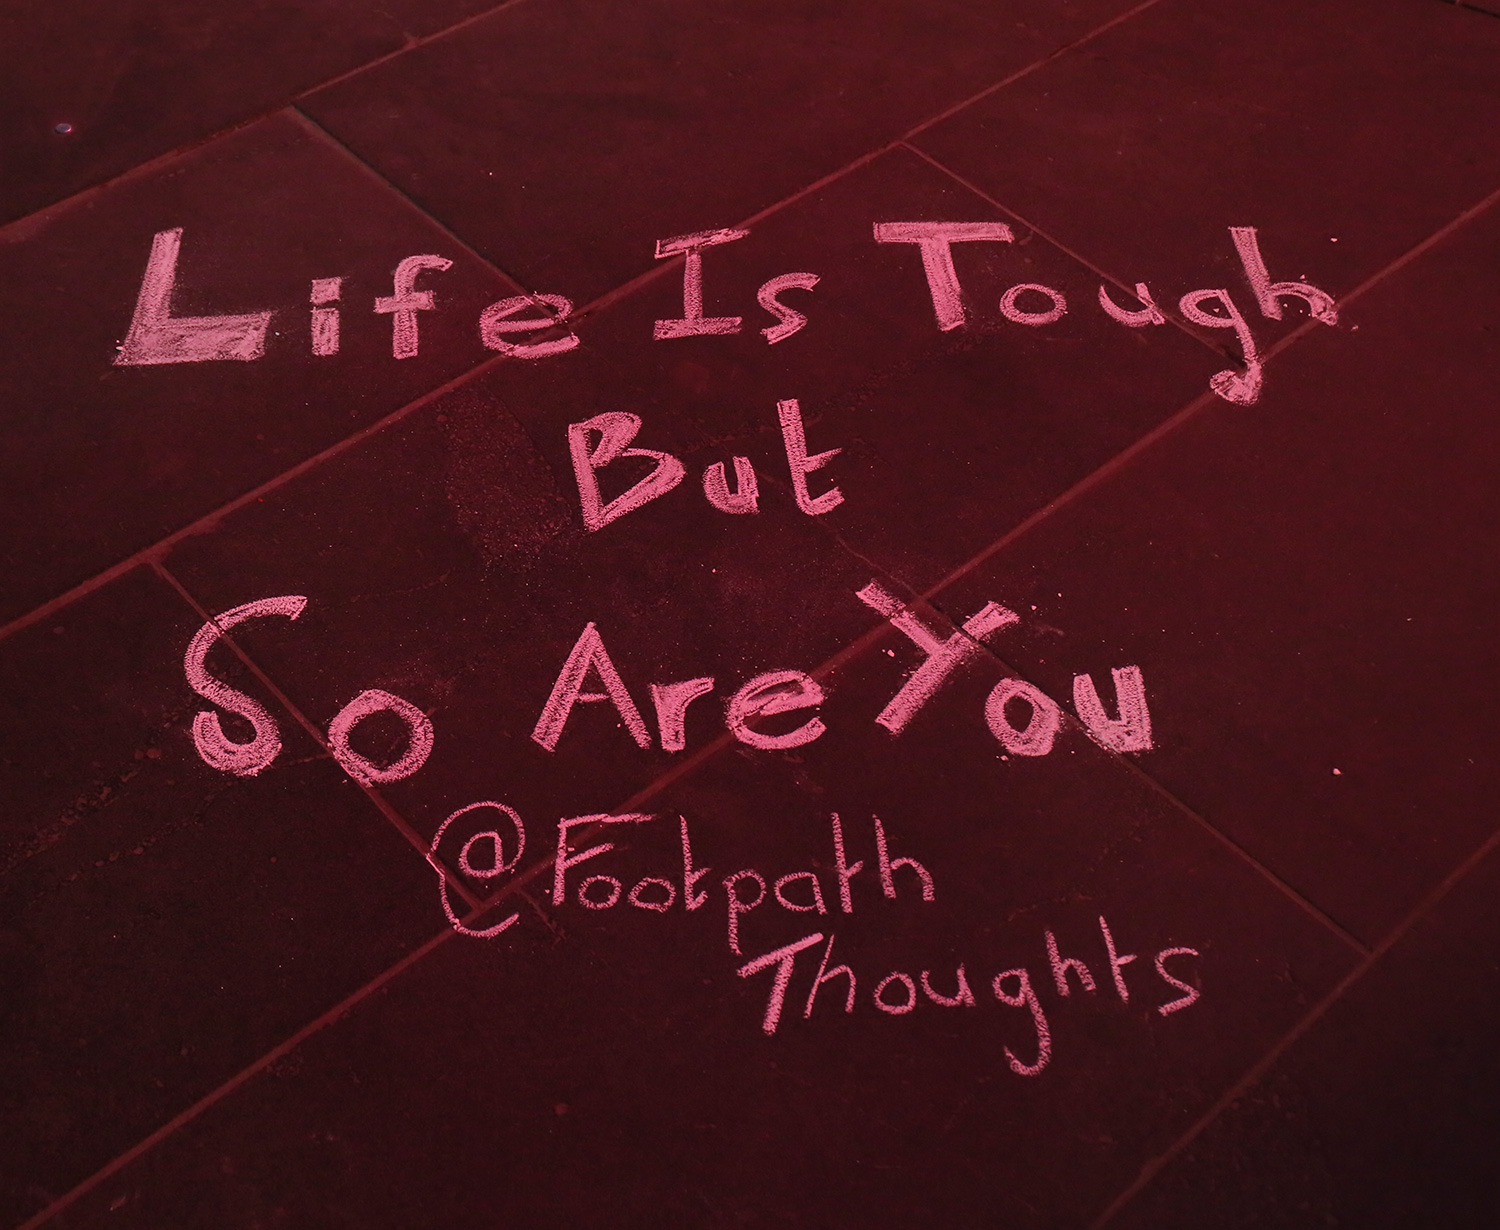 Life Is Tough
But
So Are You
@Footpath
Thoughts